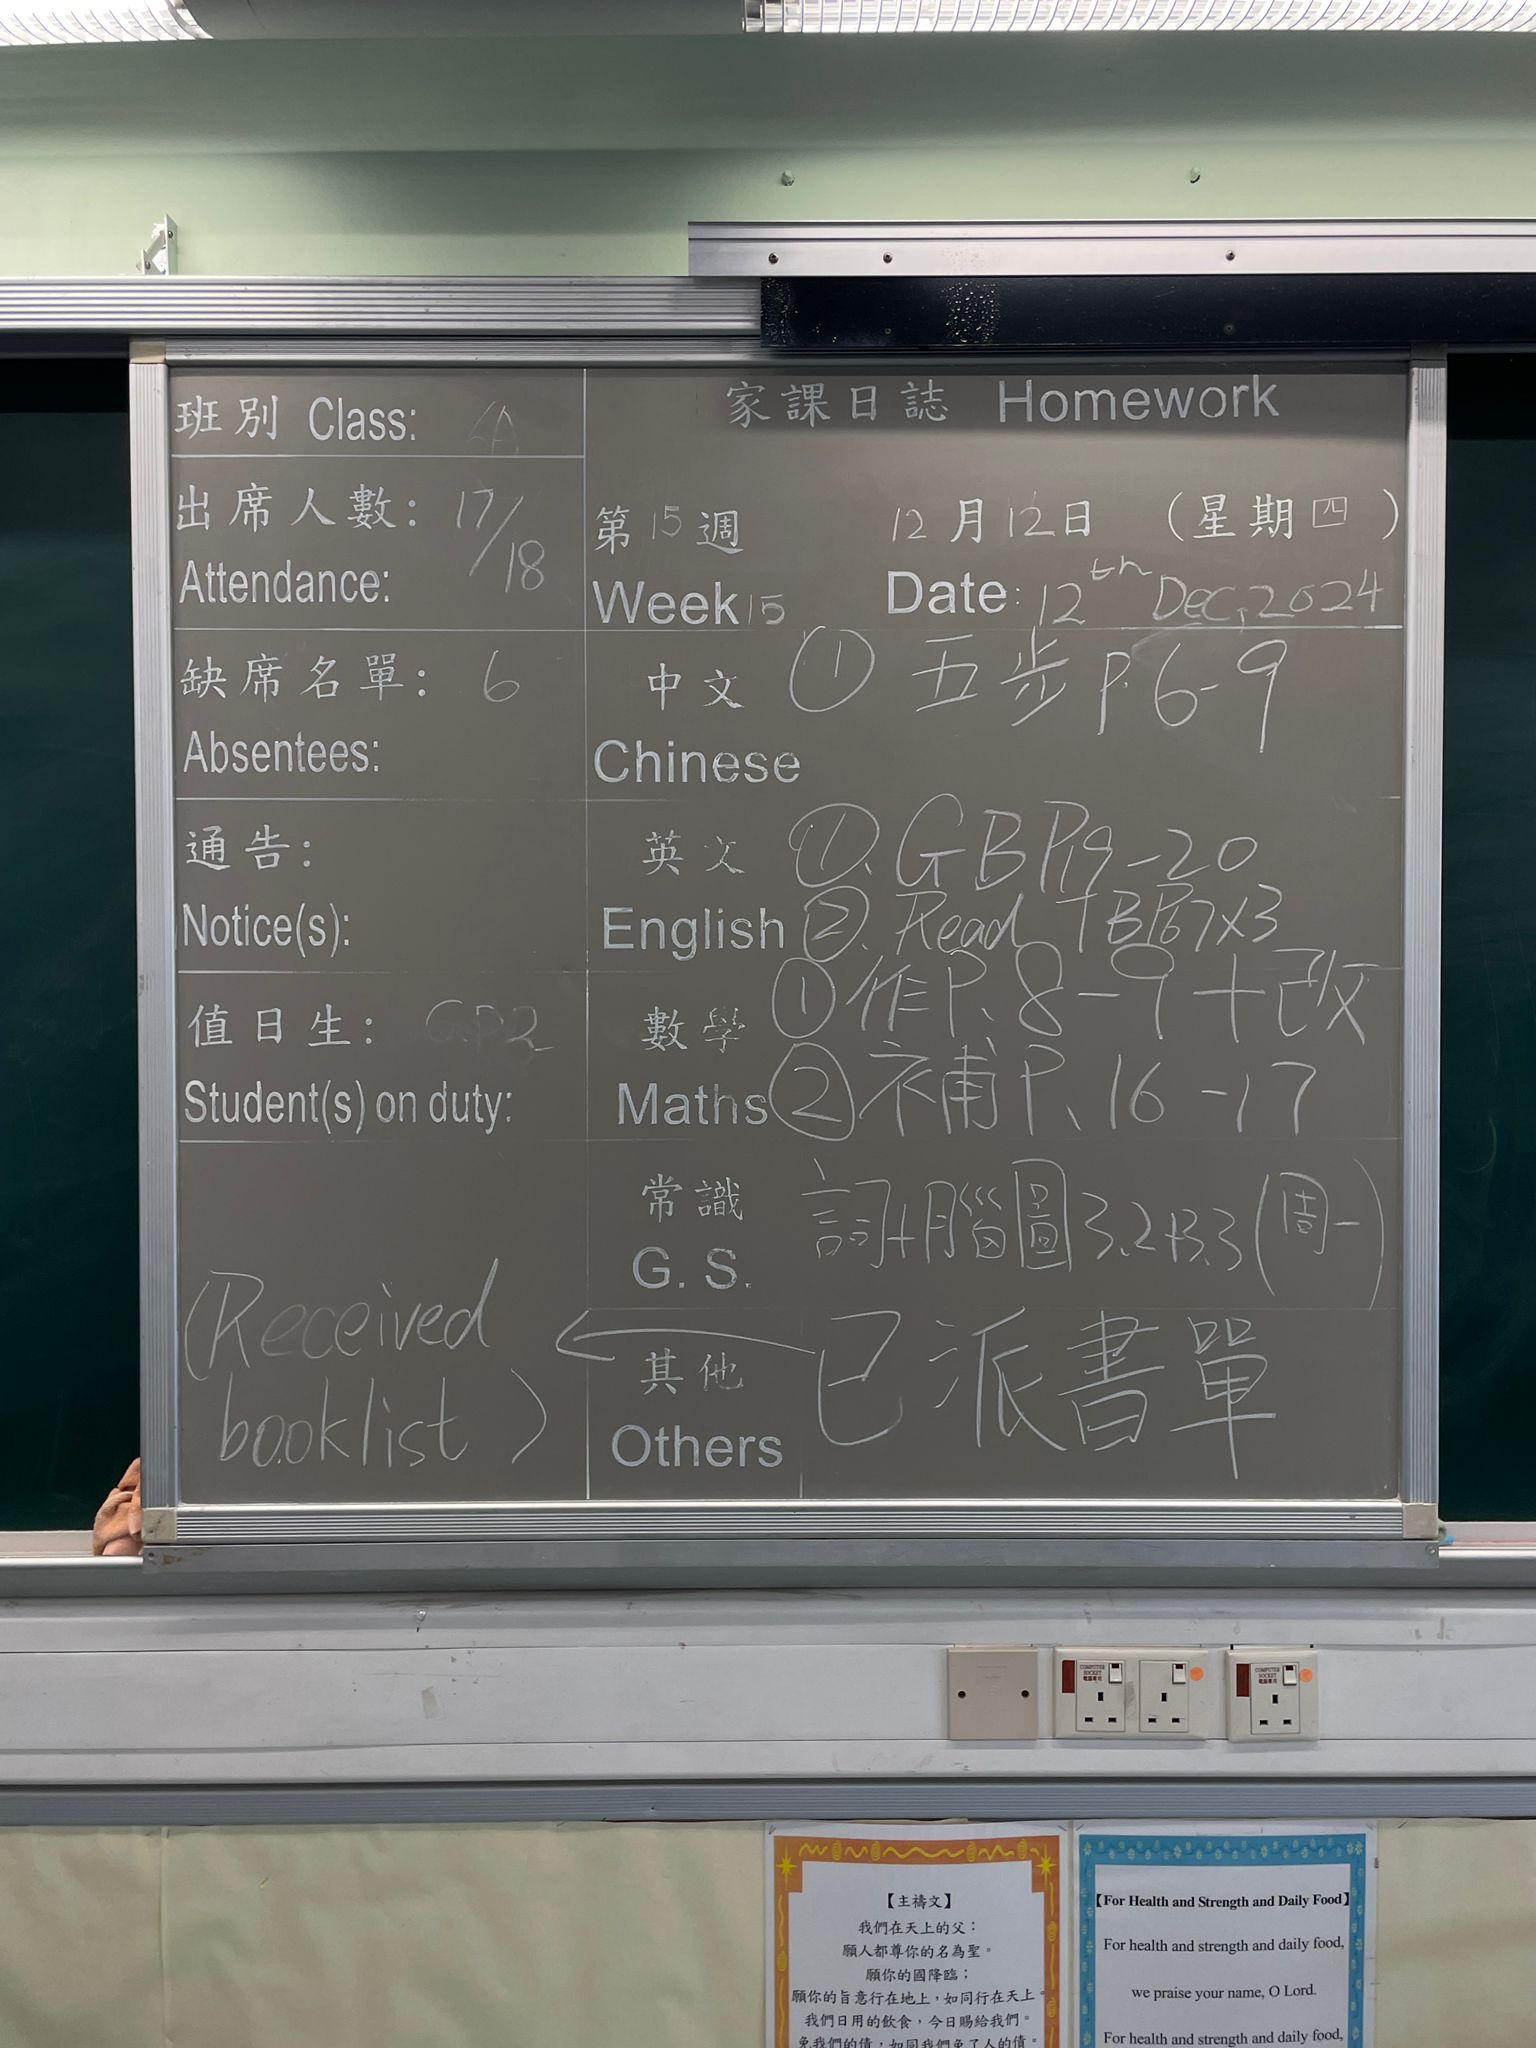 家課日誌 Homework
班別 Class:
出席人數: 17/18
Attendance:
第15週 12月12日 (星期四)
Week 15 Date: 12th Dec, 2024
缺席名單: 6
Absentees:
中文 ① 五步 P.6-9
Chinese
通告:
Notice(s):
英文 ①. GB P19-20
English ②. Read TB P67x3
值日生: G.P.2
Student(s) on duty:
數學 ① 作P.8-9+改
Maths ② 補P.16-17
常識 詞+腦圖3.2+3.3(周一)
G. S.
其他 已派書單
Others
(Received
booklist)
COMPUTER
SOCKET
電腦專用
COMPUTER
SOCKET
電腦專用
【主禱文】
我們在天上的父：
願人都尊你的名為聖。
願你的國降臨；
願你的旨意行在地上，如同行在天上。
我們日用的飲食，今日賜給我們。
免我們的債，如同我們免了人的債。
【For Health and Strength and Daily Food】
For health and strength and daily food,
we praise your name, O Lord.
For health and strength and daily food,